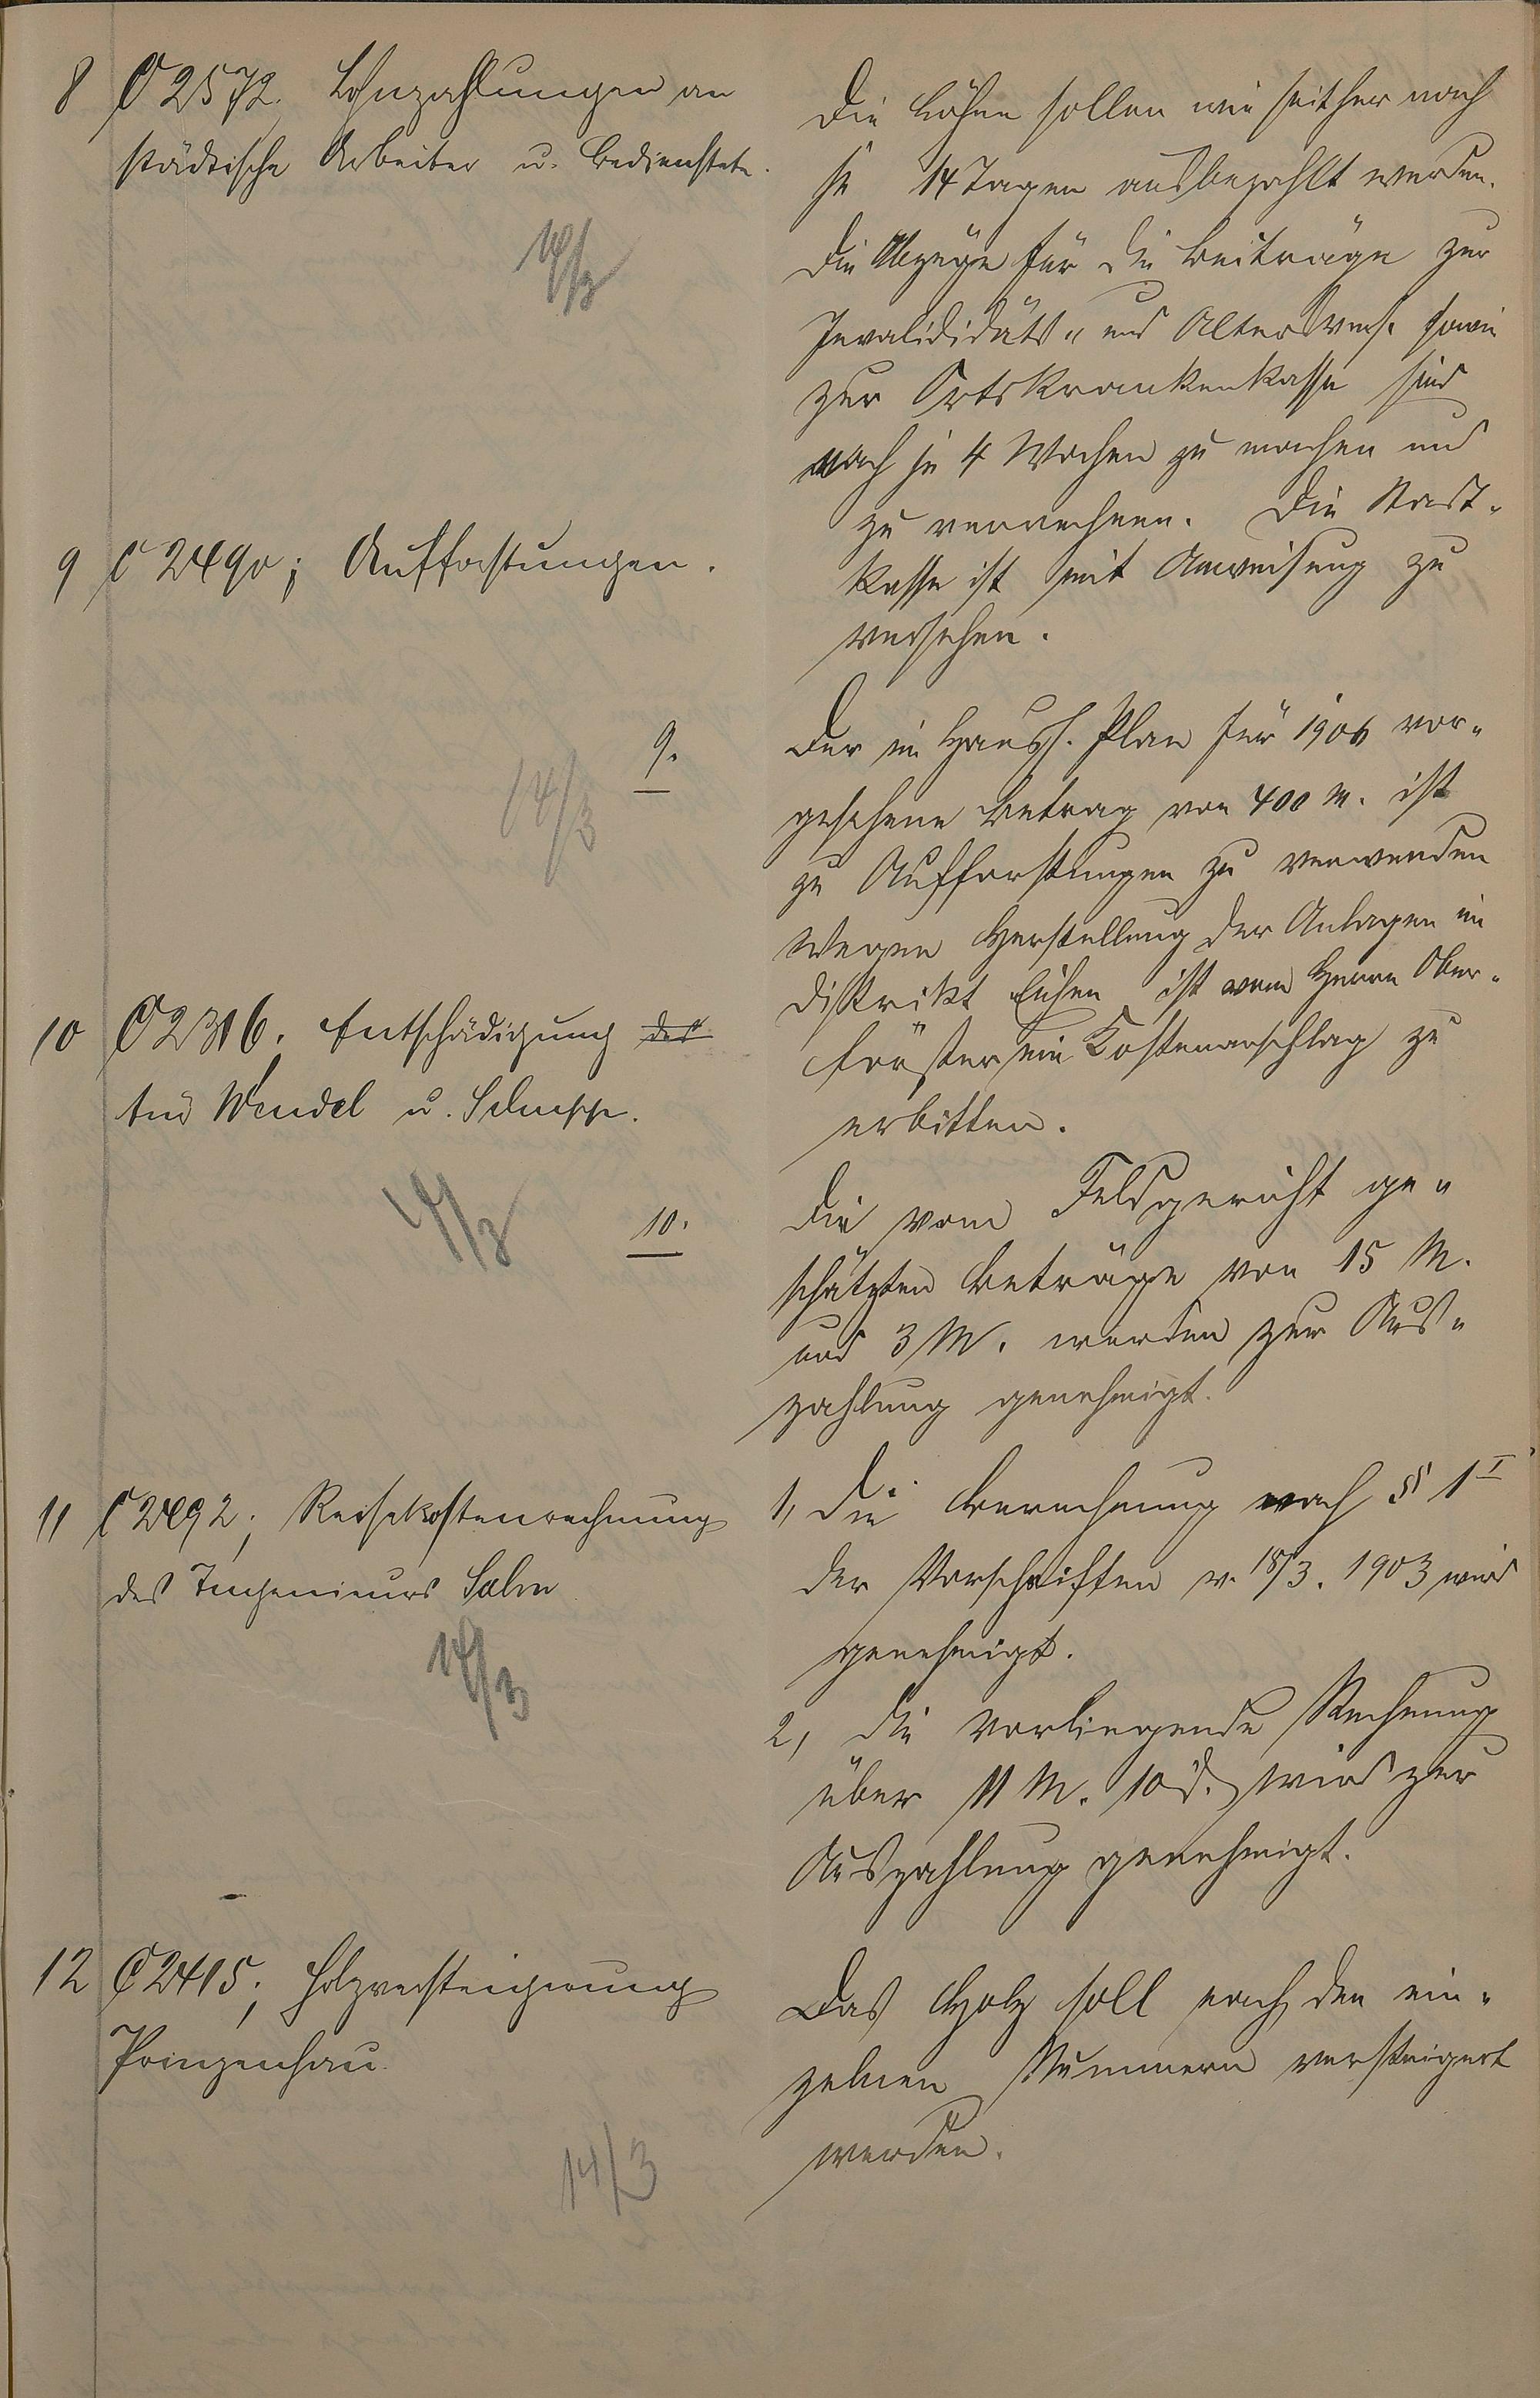 8 C 2572. Lohnzahlungen an
städtische Arbeiter u. Bedienstete.
14/3
Die Löhne sollen wie seither nach
je 14 Tagen ausbezahlt werden.
Die Abzüge für die Beiträge zur
Invalididäts- und Altersvers. sowie
zur Ortskrankenkasse sind
nach je 4 Wochen zu machen und
zu verrechnen. Die Stadt-
kasse ist mit Anweisung zu
versehen.
9 C 2490; Aufforstungen.
14/3
9.
Der im Haush. Plan für 1906 vor-
gesehene Betrag von 400 M. ist
zu Aufforstungen zu verwenden
Wegen Herstellung der Anlagen im
Distrikt Eichen ist vom Herrn Ober-
förster ein Kostenanschlag zu
erbitten.
10 C 2316. Entschädigung des
Wendel u.
14/3
10.
Die vom Feldgericht ge-
schätzten Beträge von 15 M.
und 3 M. werden zur Aus-
zahlung genehmigt.
11 C 2492; Reisekostenrechnung
des Ingenieurs Salm
14/3
1, Die Berechnung nach § 1 I
der Vorschriften v. 18/3. 1903 wird
genehmigt.
2, die vorliegende Rechnung
über 11 M. 10 d. wird zur
Auszahlung genehmigt.
12 C 2415; Holzversteigerung
Prinzenhau.
14/3
Das Holz soll nach den ein-
zelnen Nummern versteigert
werden.